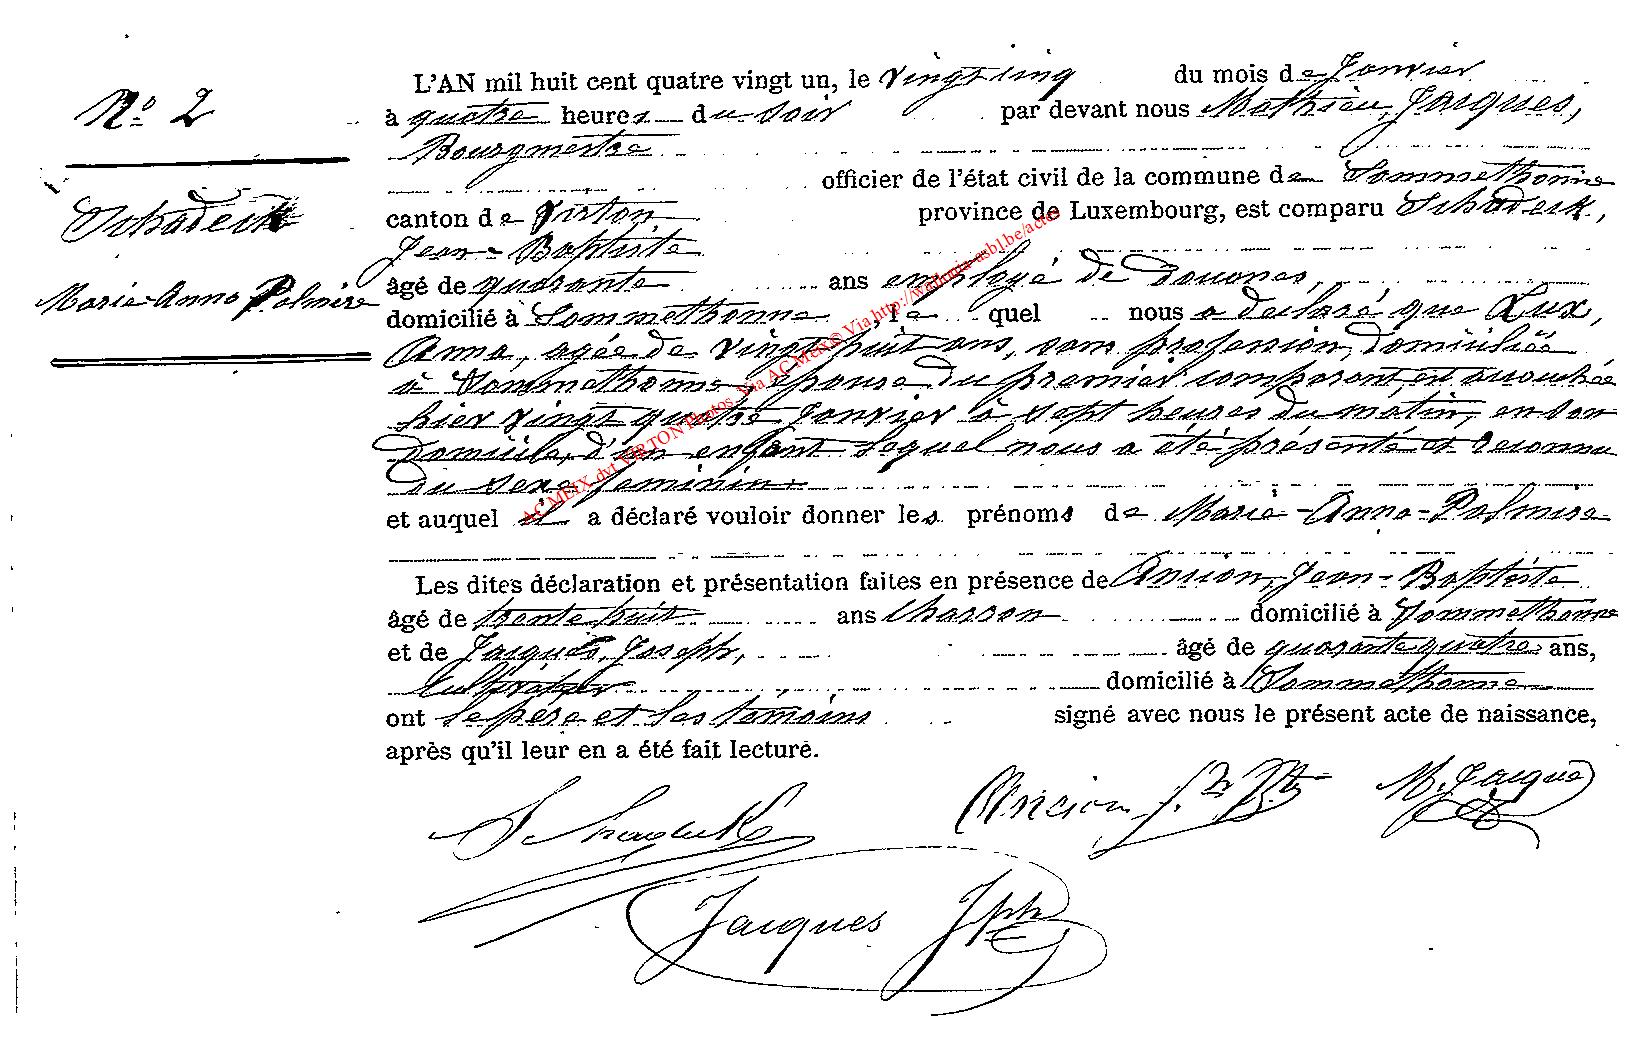 N° 2
Schadeck
Marie-Anne Palmire
L'AN mil huit cent quatre vingt un, le vingt cinq du mois de Janvier
à quatre heures du soir par devant nous Mathieu, Jacques,
Bourgmestre
officier de l'état civil de la commune de Sommethonne
canton de Virton province de Luxembourg, est comparu Schadeck,
Jean-Baptiste
âgé de quarante ans employé de douanes,
domicilié à Sommethonne, le quel nous a déclaré que Lux,
Anna, agée de vingt huit ans, sans profession, domiciliée
à Sommethonne épouse du premier comparant, est accouchée
hier vingt quatre Janvier à sept heures du matin, en son
domicile, d'un enfant lequel nous a été présenté et reconnu
du sexe féminin
et auquel il a déclaré vouloir donner les prénoms de Marie-Anne-Palmire
Les dites déclaration et présentation faites en présence de Ancion, Jean-Baptiste
âgé de trente huit ans charron domicilié à Sommethonne
et de Jacques, Joseph, âgé de quarante quatre ans,
cultivateur domicilié à Sommethonne
ont le père et les témoins signé avec nous le présent acte de naissance,
après qu'il leur en a été fait lecture.
Schadeck Ancion J. Bte M. Jacques
Jacques Jph
AC MEIX dvt VIRTON Photos Via AC Meix © Via http://wallonia-asbl.be/actes